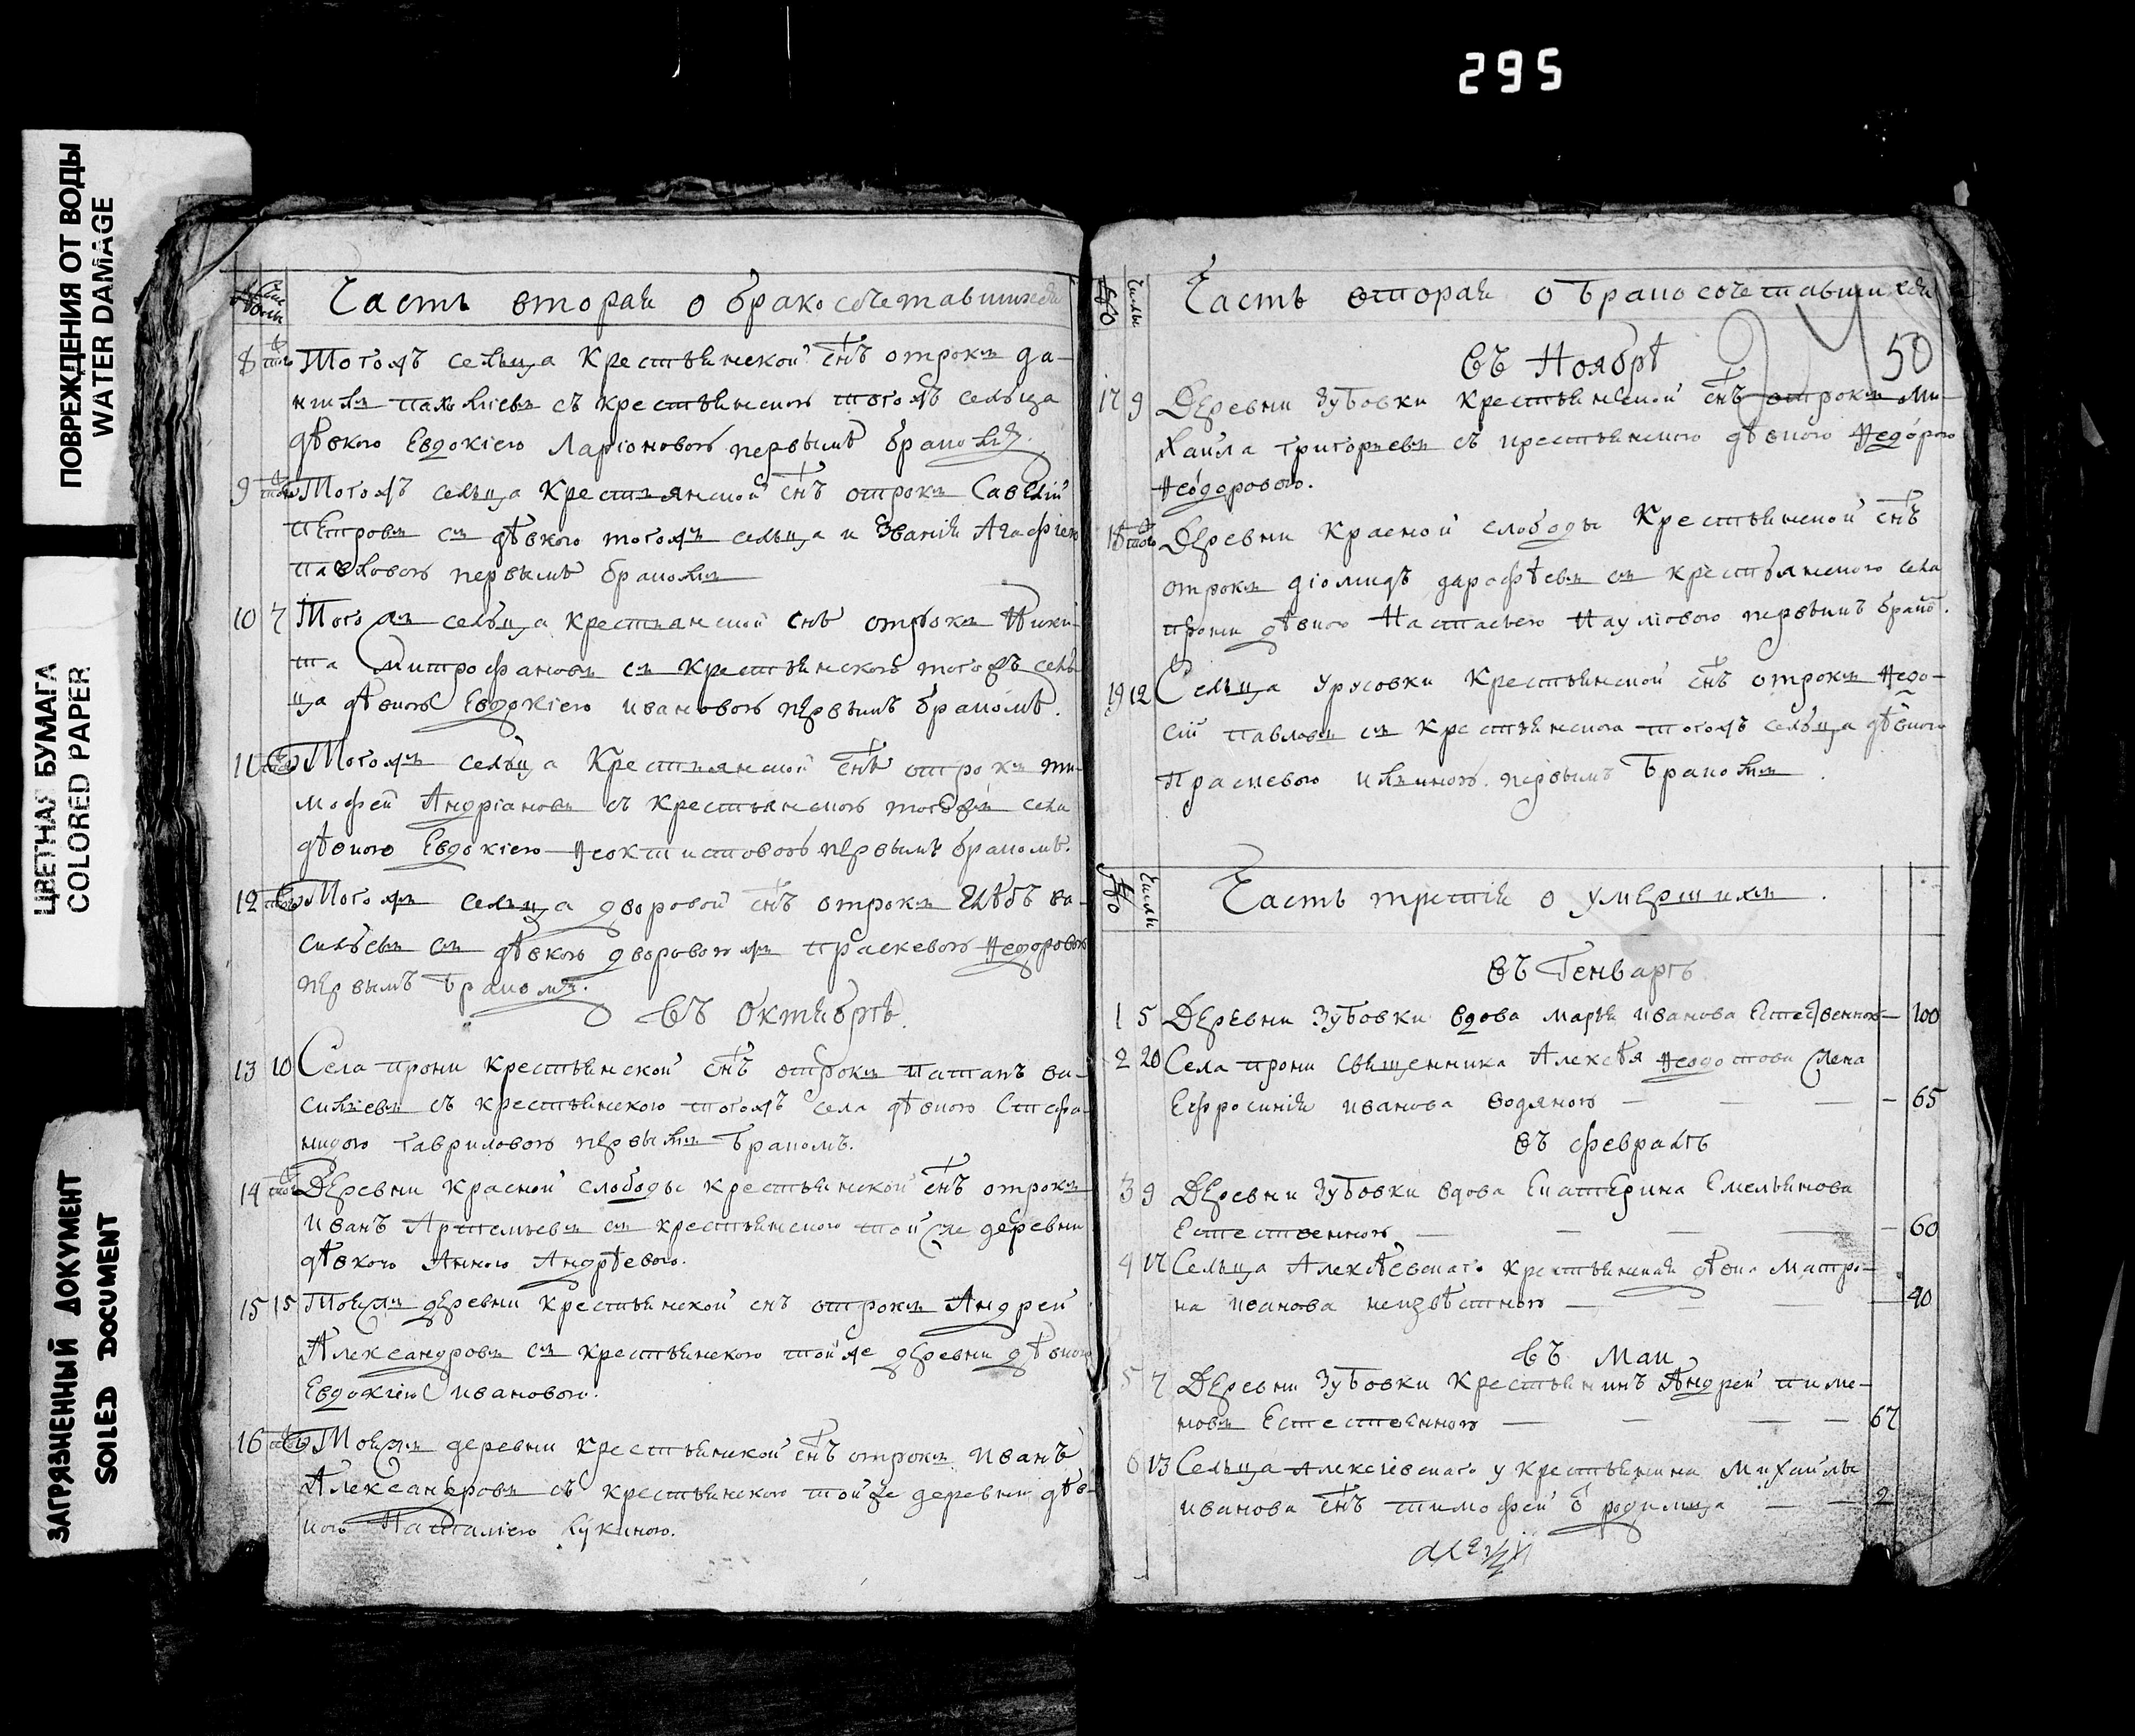 295
ПОВРЕЖДЕНИЯ ОТ ВОДЫ
WATER DAMAGE
ЦВЕТНАЯ БУМАГА
COLORED PAPER
ЗАГРЯЗНЕННЫЙ ДОКУМЕНТ
SOILED DOCUMENT
Часть вторая о бракосочетавшихся
8 Тогожъ сельца крестьянской снъ отрокъ Да-
нилъ с крестьянскою тогожъ сельца
дѣвкою Евдокіею Ларіоновою первымъ бракомъ
9 Тогожъ сельца крестьянской снъ отрокъ Савелій
Петровъ съ дѣвкою тогожъ сельца и званія Агафіею
Павловою первымъ бракомъ
10 7 Тогожъ сельца крестьянской снъ отрокъ Ники-
та Митрофановъ съ крестьянскою тогожъ сель-
ца дѣвкою Евдокіею Ивановою первымъ бракомъ.
11 Тогожъ сельца крестьянской снъ отрокъ Ти-
мофей Андріановъ съ крестьянскою тогожъ села
дѣвкою Евдокіею Ѳеоктистовою первымъ бракомъ.
12 Тогожъ сельца дворовой снъ отрокъ Глѣбъ Ва-
сильевъ съ дѣвкою дворовоюжъ Праскевою Ѳедоровою
первымъ бракомъ.
Въ Октябрѣ.
13 10 Села Прони крестьянской снъ отрокъ Патапъ Ва-
силиевъ съ крестьянскою тогожъ села дѣвкою Стефа-
нидою Гавриловою первымъ бракомъ.
14 Деревни Красной слободы крестьянской снъ отрокъ
Иванъ Артемьевъ съ крестьянскою той же деревни
дѣвкою Анною Андрѣевою.
15 15 Тоежъ деревни крестьянской снъ отрокъ Андрей
Александровъ съ крестьянскою тойже деревни дѣвкою
Евдокіею Ивановою.
16 Тоежъ деревни крестьянской снъ отрокъ Иванъ
Александровъ съ крестьянскою тойже деревни дѣв-
кою Наталіею Лукиною.
Часть вторая о бракосочетавшихся
50
Въ Ноябрѣ
17 9 Деревни Зубовки крестьянской снъ отрокъ Ми-
хаила Григорьевъ съ крестьянскою дѣвкою Ѳедорою
Ѳеодоровою.
18 Деревни Красной слободы крестьянской снъ
отрокъ Діомидъ Дарофѣевъ съ крестьянскою села
Прони дѣвкою Настасьею первымъ брако.
19 12 Сельца Урусовки крестьянской снъ отрокъ Ѳедо-
сій Павловъ съ крестьянскою тогожъ сельца дѣвкою
Праскевою Ильиною первымъ бракомъ.
Часть третія о умершихъ.
Въ Генварѣ
1 5 Деревни Зубовки вдова Марья Иванова Естественною 100
2 20 Села Прони священника Алексѣя Ѳеодотова жена
Ефросинія Иванова водяною 65
Въ Февралѣ
3 9 Деревни Зубовки вдова Екатерина Емельянова
Естественною 60
4 17 Сельца Алексѣевскаго крестьянская дѣвка Матро-
на Иванова неизвѣстною
Въ Маи
5 7 Деревни Зубовки крестьянинъ Андрей Пиме-
новъ Естественною 67
6 13 Сельца Алексіевскаго у крестьянина Михаилы
Иванова снъ Тимофей ѿ родимца 2